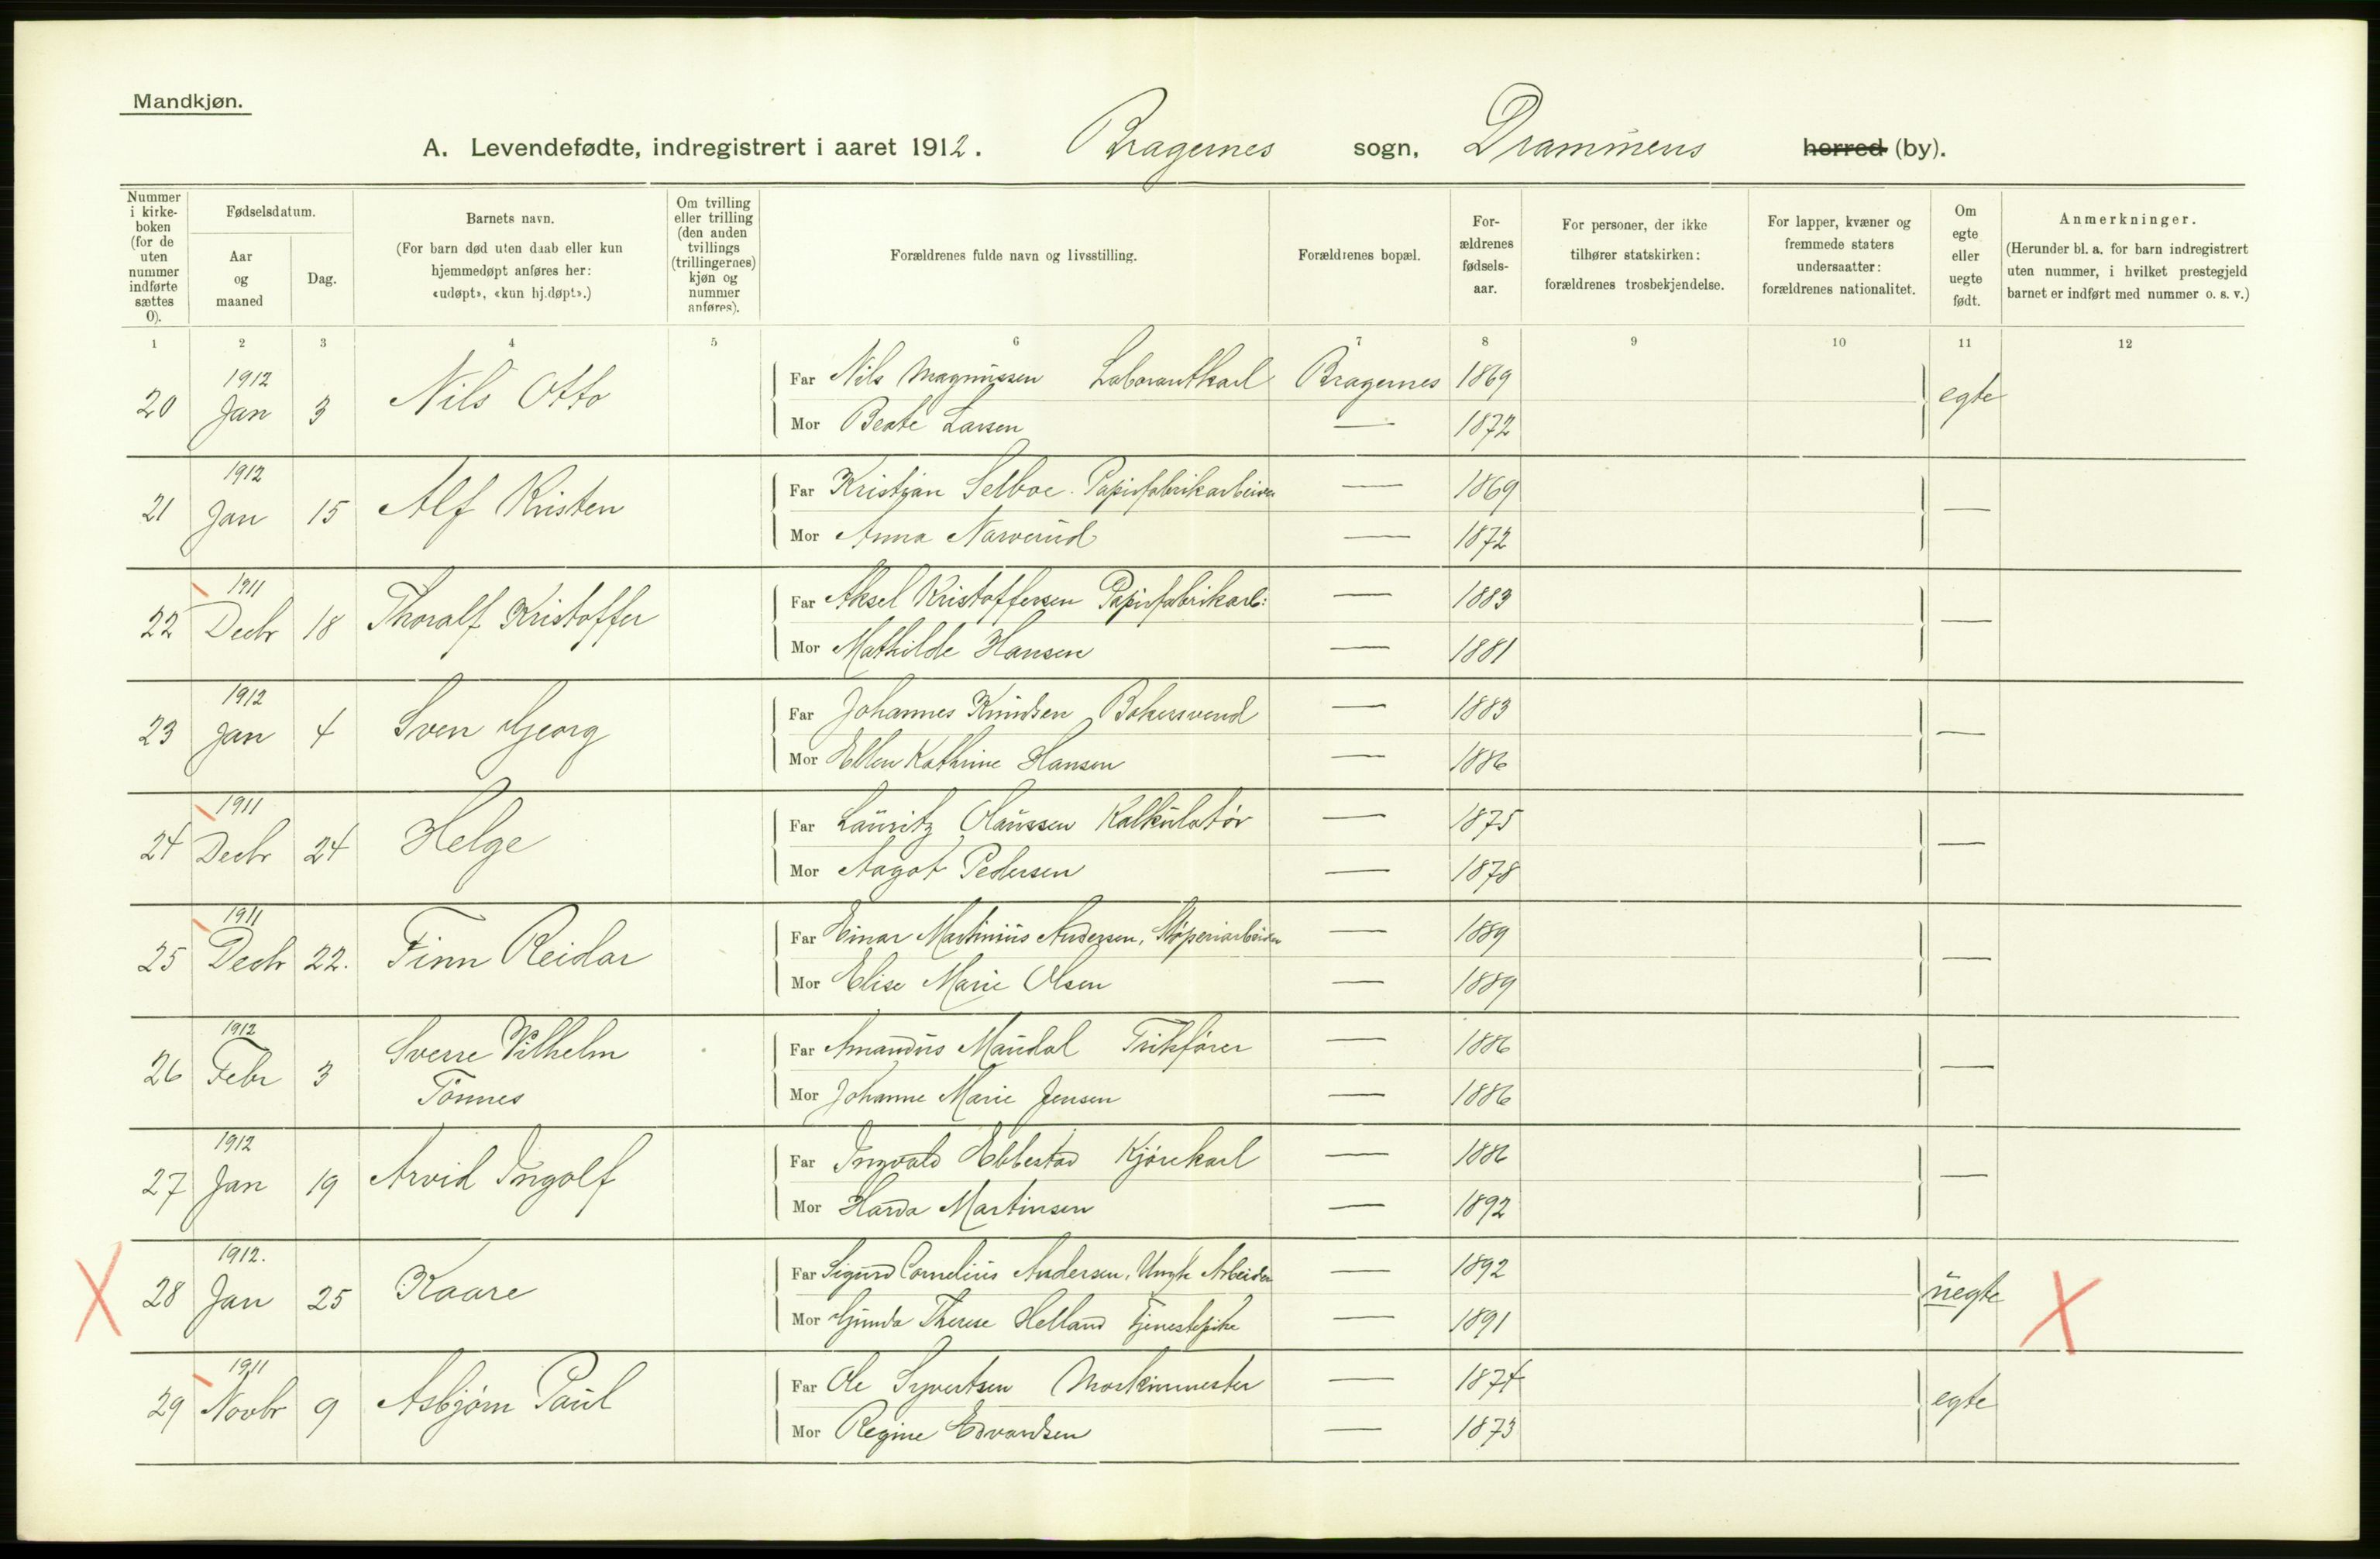 Mandkjøn.
A. Levendefødte, indregistrert i aaret 1912. Bragernes sogn, Drammens herred (by).
Nummer i kirke-boken (for de uten nummer indførte sættes 0).
Fødselsdatum.
Aar og maaned
Dag.
Barnets navn.
(For barn død uten daab eller kun hjemmedøpt anføres her: «udøpt», «kun hj.døpt».)
Om tvilling eller trilling (den anden tvillings (trillingernes) kjøn og nummer anføres).
Forældrenes fulde navn og livsstilling.
Forældrenes bopæl.
For-ældrenes fødsels-aar.
For personer, der ikke tilhører statskirken: forældrenes trosbekjendelse.
For lapper, kvæner og fremmede staters undersaatter: forældrenes nationalitet.
Om egte eller uegte født.
Anmerkninger.
(Herunder bl. a. for barn indregistrert uten nummer, i hvilket prestegjeld barnet er indført med nummer o. s. v.)
1 2 3 4 5 6 7 8 9 10 11 12
1912
20 Jan 3 Nils Otto
Far Nils Magnussen Laborantkarl Bragernes 1869 egte
Mor Beate Larsen — 1872
1912
21 Jan 15 Alf Kristen
Far Kristian Selboe. Papirfabrikarbeider — 1869 —
Mor Anna Narverud — 1872
1911
22 Decbr 18 Thoralf Kristoffer
Far Aksel Kristoffersen Papirfabrikarb: — 1883 —
Mor Mathilde Hansen — 1881
1912
23 Jan 4 Sven Georg
Far Johannes Knudsen Bakersvend — 1883 —
Mor Ellen Kathrine Hansen — 1886
1911
24 Decbr 24 Helge
Far Lauritz Claussen Kalkulatør — 1875 —
Mor Aagot Pedersen — 1878
1911
25 Decbr 22. Finn Reidar
Far Einar Martinius Andersen, Støperiarbeider — 1889 —
Mor Elise Marie Olsen — 1889
1912
26 Febr 3 Sverre Vilhelm Tönnes
Far Amandus Maudal — 1886 —
Mor Johanne Marie Jensen — 1886
1912
27 Jan 19 Arvid Ingolf
Far Ingvald Ebbestad Kjørekarl — 1886 —
Mor Harda Martinsen — 1892
1912.
X 28 Jan 25 Kaare
Far Sigurd Cornelius Andersen, Ungk Arbeider — 1892 uegte X
Mor Gunda Therese Helland Tjenestepike — 1891
1911
29 Novbr 9 Asbjørn Paul
Far Ole Syvertsen Maskinmester — 1874 egte
Mor Regine Edvardsen — 1873